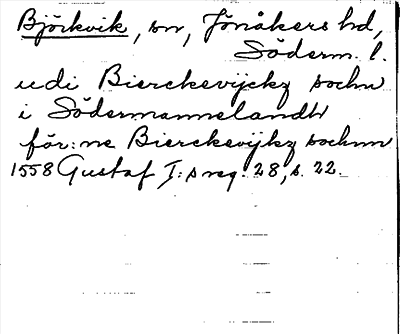 Björkvik, sn, Jönåkers hd,
Söderm. l.
udi Bierckevijckz sochn
i Södermannelandh
för:ne Bierckevijkz sochnn
1558 Gustaf I:s reg. 28, s. 22.